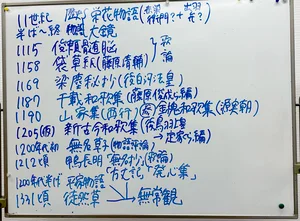 11世紀 歴史 栄花物語
半ば〜終 物語 大鏡
1115 俊頼髄脳
1158 袋草紙(藤原清輔)
歌論
1169 梁塵秘抄(後白河法皇)
1187 千載和歌集(藤原俊成ら編)
1190 山家集(西行) 金槐和歌集(源実朝)
1205(仮) 新古今和歌集(後鳥羽
→定家ら編)
1200年代初 無名草子(物語評論)
1212頃 鴨長明「無名抄」(歌論)
「方丈記」「発心集」
1200年代半ば 平家物語
→無常観
1331頃 徒然草